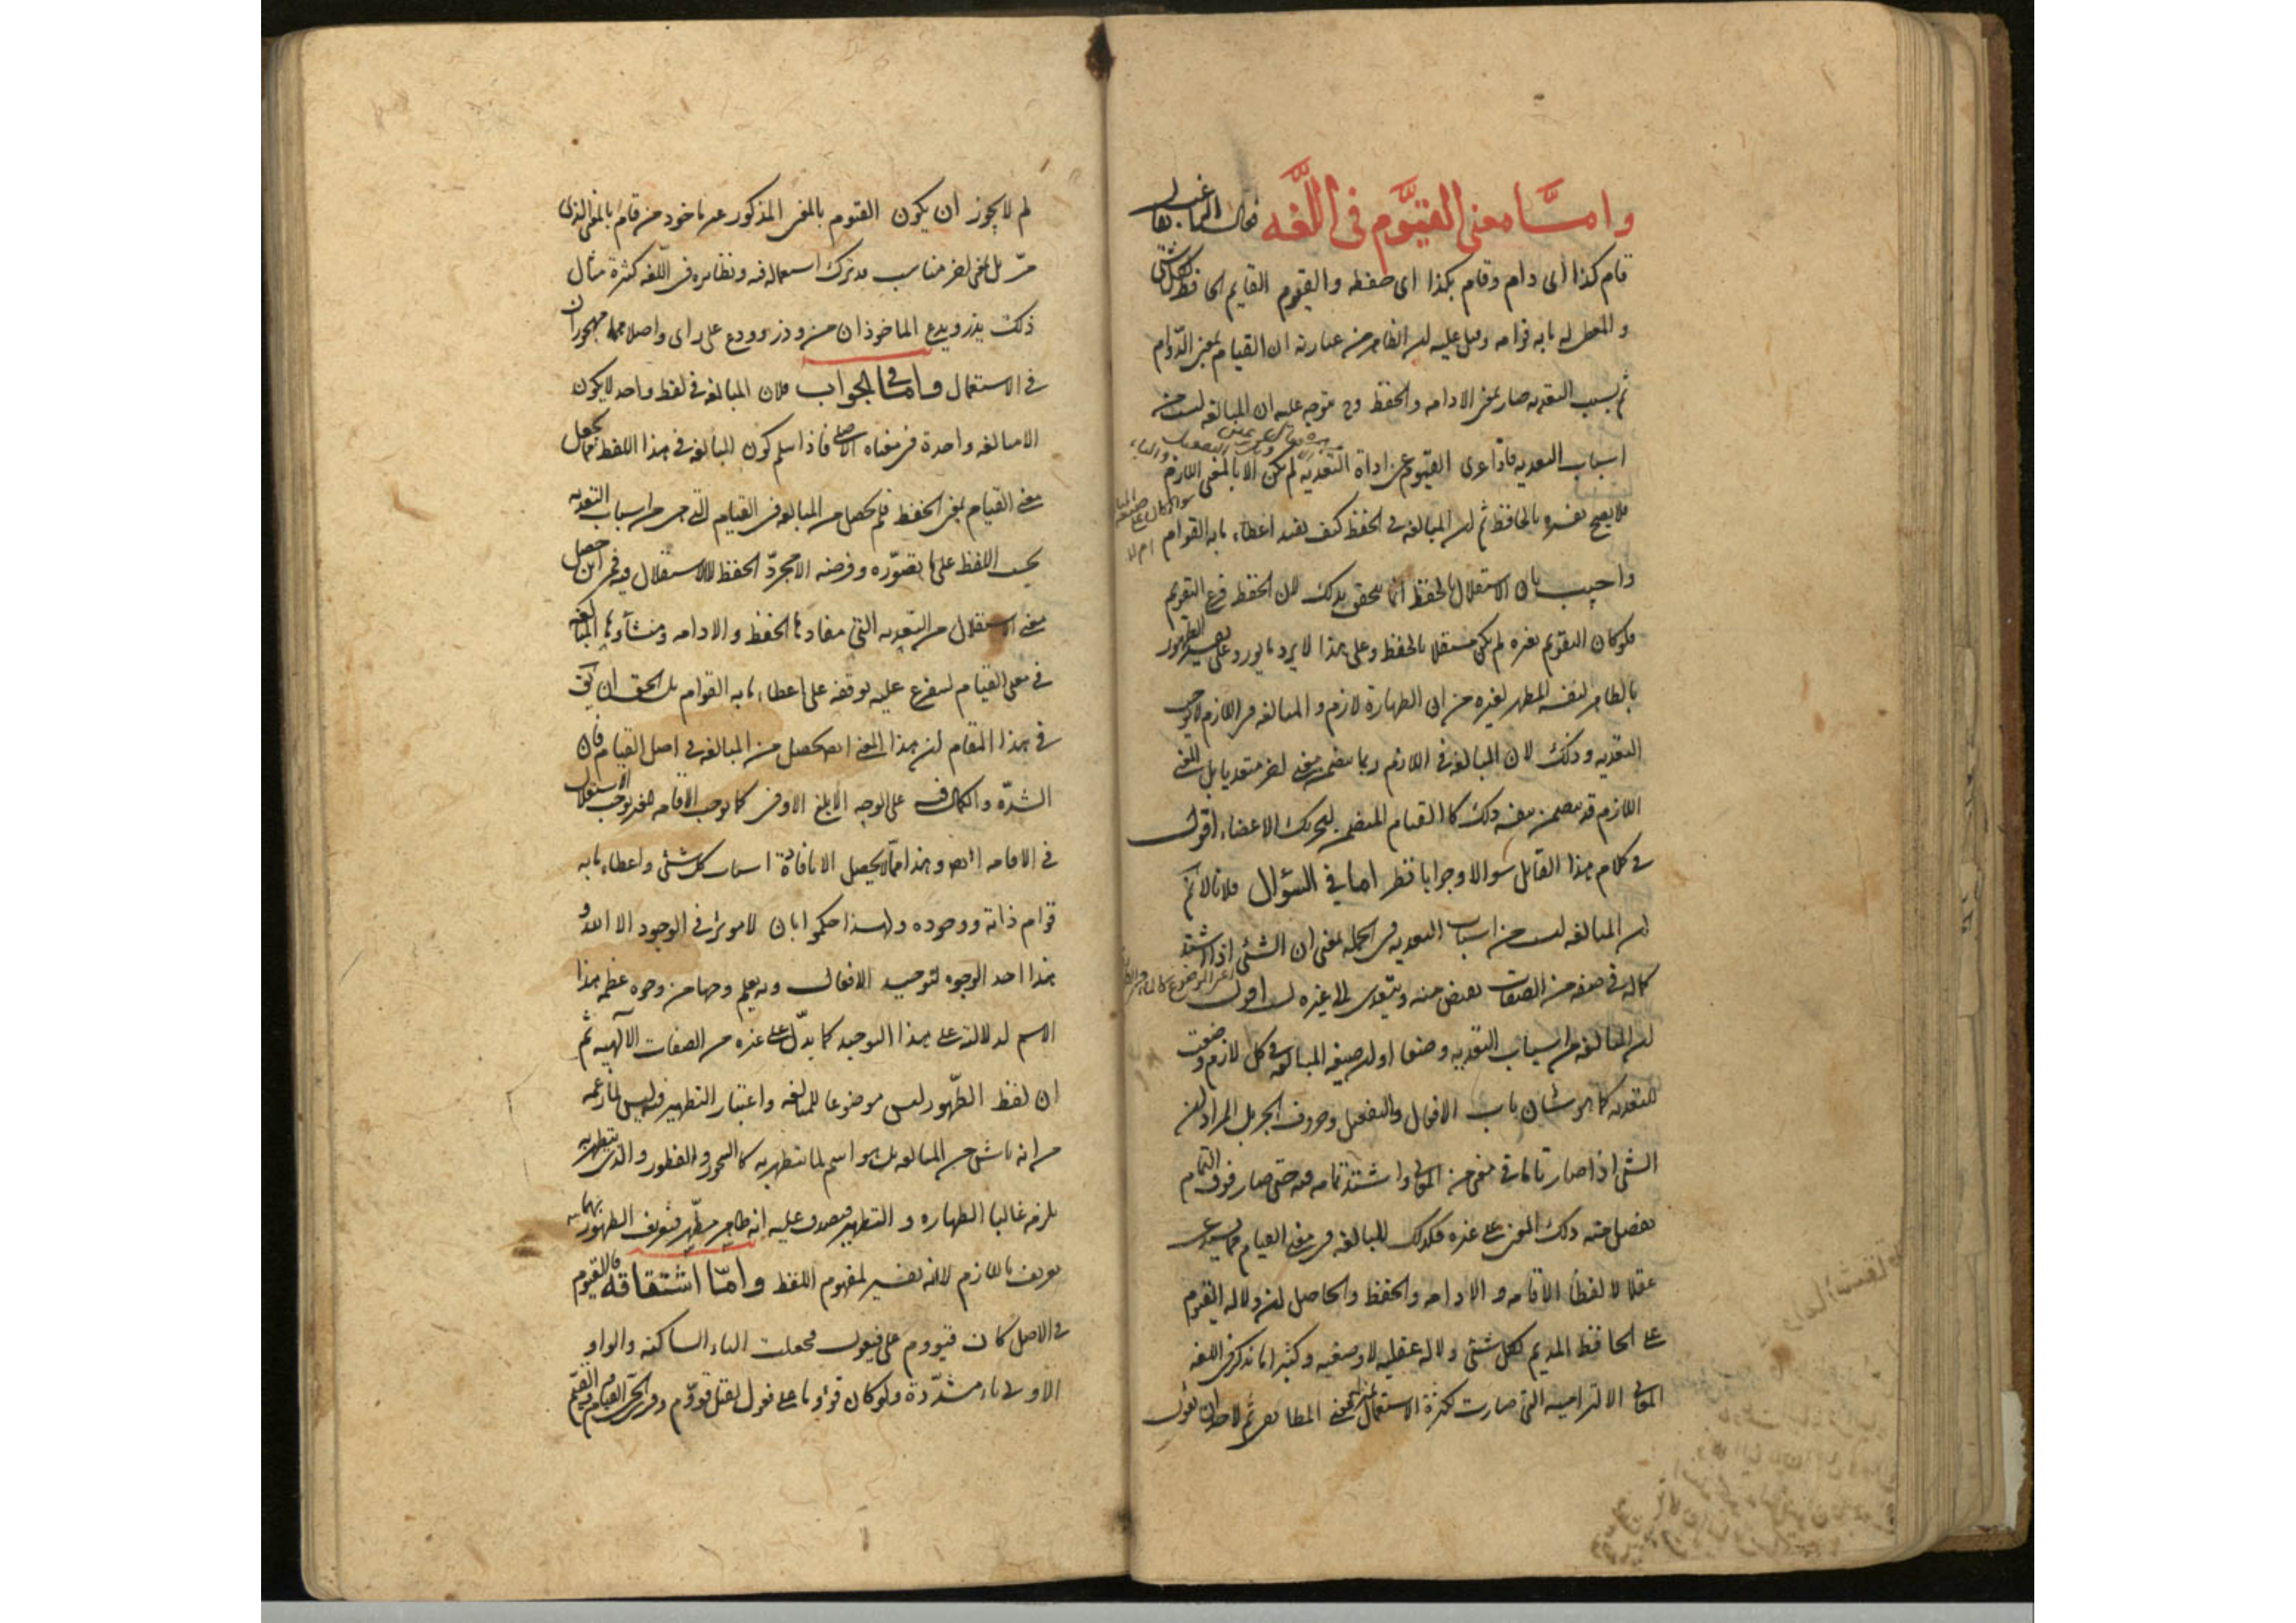 وامــا معنى القيّوم فى اللّغه فقال الراغب يقال
قام كذا اى دام وقام بكذا اى حفظه والقيوم القايم الحافظ لكل شئ
والمعطى له ما به قوامه وقيل عليه ان الظاهر من عبارته ان القيام بمعنى الدّوام
ثم بسبب التعديه صار بمعنى الادامه والحفظ وح يتوجه عليه ان المبالغه ليست من
اسباب التعديه فاذا عرى القيّوم عن اداة التعديه لم يكن الا بالمعنى اللازم
فلا يصح تفسيره بالحافظ ثم ان المبالغه فى الحفظ كيف يفيد اعطاء ما به القوام
واجيب بان الاستقلال بالحفظ انما يتحقق بذلك لان الحفظ فرع التقويم
فلو كان التقويم بغيره لم يكن مستقلا بالحفظ وعلى هذا لا يرد ما يورد على تفسير الطهور
بالطاهر لنفسه المطهر لغيره من ان الطهارة لازم والمبالغه فى اللازم لا توجب
التعديه وذلك لان المبالغه فى اللازم ربما يتضمن معنى اخر متعديا بل المعنى
اللازم قد يتضمن بنفسه ذلك كالقيام المتضمن لتحريك الاعضاء اقول
فى كلام هذا القائل سوالا وجوابا نظر اما فى السؤال فلانا لا نم
ان المبالغه ليست من اسباب التعديه فى الجمله بمعنى ان الشئ اذا اشتد
كماله فى صفه من الصفات يفيض منه ويتعدى الى غيره لست اقول
ان المبالغه من اسباب التعديه وضعا او ان صيغه المبالغه فى كل لازم وضعت
للتعديه كما هو شان باب الافعال والتفعيل وحروف الجر بل المراد ان
الشئ اذا صار تاما فى معنى من المعانى واشتد تمامه فيه حتى صار فوق التمام
يفضل منه ذلك المعنى على غيره فكذلك المبالغه فى معنى القيام مما يستدعى
عقلا لا لفظا الاقامه و الادامه والحفظ والحاصل ان دلاله القيوم
على الحافظ المديم لكل شئ دلاله عقليه لا وضعيه وكثيرا ما يذكر فى اللغه
المعانى الالتزاميه التى صارت لكثرة الاستعمال المعنى المطابقى ثم لاحد ان يقول
لم لا يجوز ان يكون القيوم بالمعنى المذكور غير ماخوذ من قام بالمعنى الذى
مرّ بل بمعنى اخر مناسب قد ترك استعماله فيه ونظايره فى اللّغه كثيرة مثال
ذلك يذر ويدع الماخوذان من وذر وودع على راى واصلاهما مهجوران
فى الاستعمال واما فى الجواب فلان المبالغه فى لفظ واحد لا يكون
الا مبالغه واحدة فى معناه الاصلى فاذا سلم كون المبالغه فى هذا اللفظ مما يجعل
معنى القيام بمعنى الحفظ فلم يحصل من المبالغه فى القيام التى هى من اسباب التعديه
بحسب اللفظ على ما تصوّره وفرضه الا مجرّد الحفظ لا الاستقلال فيه فمن اين حصل
معنى الاستقلال من التعديه التى مفادها الحفظ والادامه ومنشأوها المبالغه
فى معنى القيام ليتفرع عليه توقفه على اعطاء ما به القوام بل الحق ان يق
فى هذا المقام ان هذا المعنى ايضا يحصل من المبالغه فى اصل القيام فان
الشدّة والكمال فيه على الوجه الابلغ الاوفى كما يوجب الاقامه لغيره يوجب الاستقلال
فى الاقامه ايض وهذا مما لا يحصل الا بافادة اسباب كل شئ واعطاء ما به
قوام ذاته ووجوده ولهذا حكموا بان لا موثر فى الوجود الا الله و
هذا احد الوجوه لتوحيد الافعال وبه يعلم وجها من وجوه عظم هذا
الاسم لدلالته على هذا التوحيد كما يدل على غيره من الصفات الآلهيه ثم
ان لفظ الطّهور ليس موضوعا للمبالغه واعتبار التطهير فيه ليس لما زعمه
من انه ناش من المبالغه بل هو اسم لما يتطهر به كالسحور والفطور والذى يتطهر به
يلزمه غالبا الطهاره و التطهير فيصدق عليه انه طاهر مطهّر فتعريف الطهور بهما
تعريف باللازم لا انه تفسير لمفهوم اللفظ وامّا اشتقاقه فالقيوم
فى الاصل كان قيووم على فيعول فجعلت الياء الساكنه والواو
الاولى ياء مشدّدة ولو كان قوّوما على فعول لقيل قوّوم وقرئ الحى القيام والقيّم